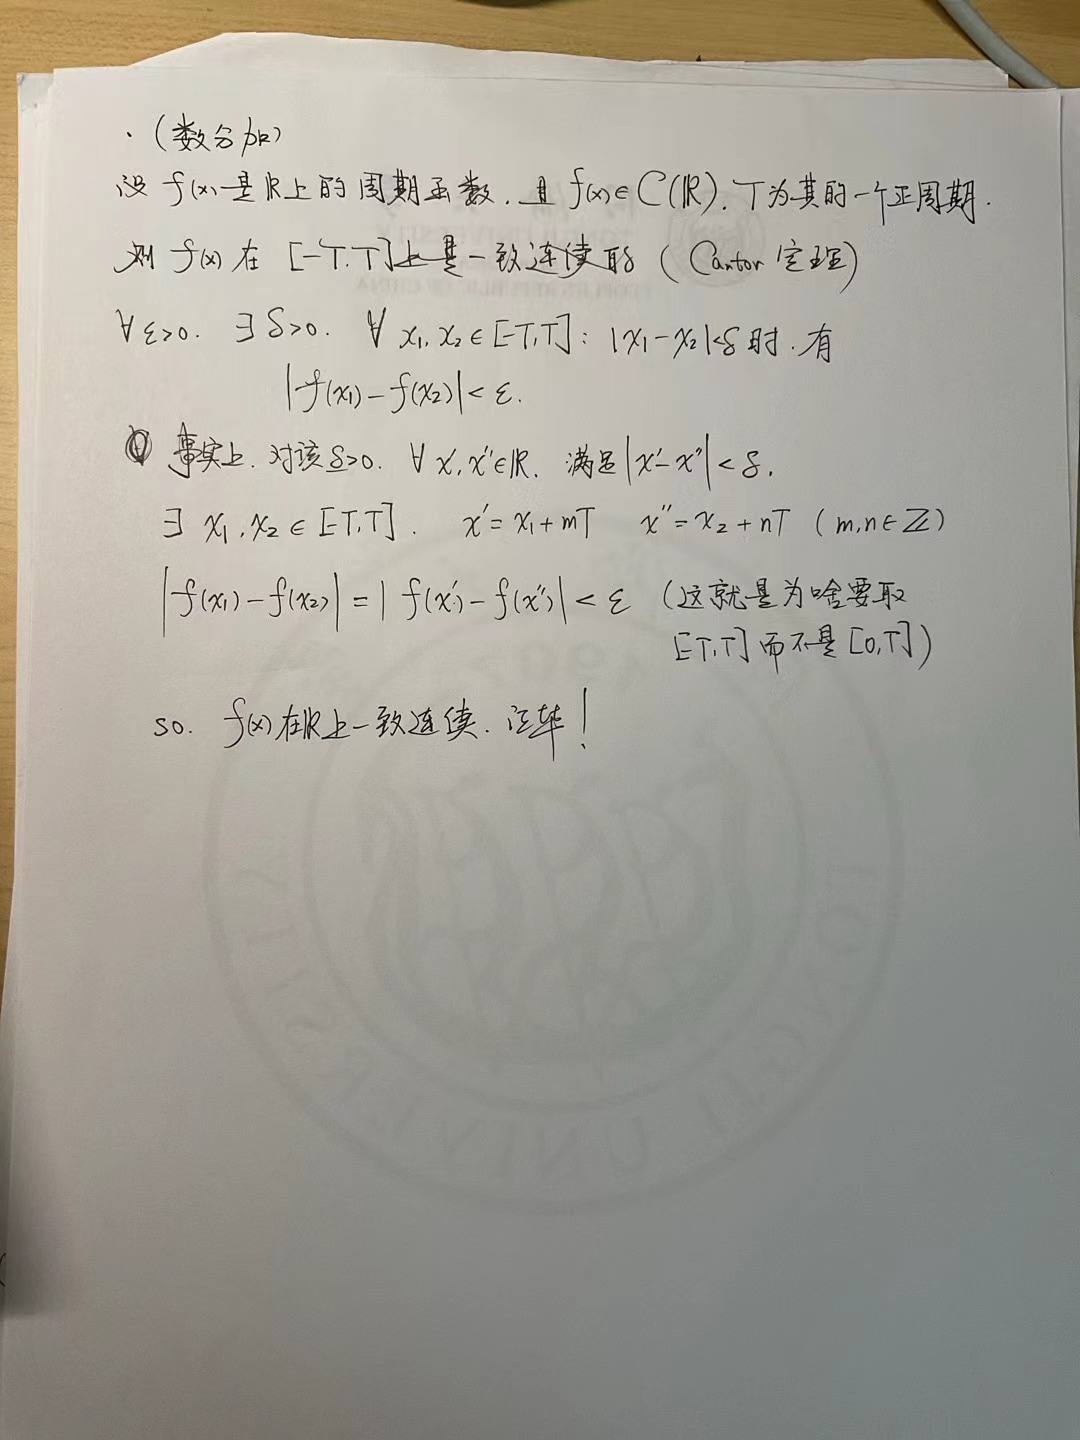 ·(数分加)
设 f(x) 是 ℝ 上的周期函数. 且 f(x)∈C(ℝ). T 为其的一个正周期.
则 f(x) 在 [-T,T] 上是一致连续的 (Cantor 定理)
∀ε>0. ∃δ>0. ∀ x₁,x₂∈[-T,T]: |x₁-x₂|<δ 时. 有
|f(x₁)-f(x₂)|<ε.
事实上. 对该 δ>0. ∀ x',x''∈ℝ. 满足 |x'-x''|<δ.
∃ x₁,x₂∈[-T,T]. x'=x₁+mT x''=x₂+nT (m,n∈ℤ)
|f(x₁)-f(x₂)|=|f(x')-f(x'')|<ε (这就是为啥要取
[-T,T] 而不是 [0,T])
so. f(x) 在 ℝ 上一致连续. 证毕!
TONGJI UNIVERSITY